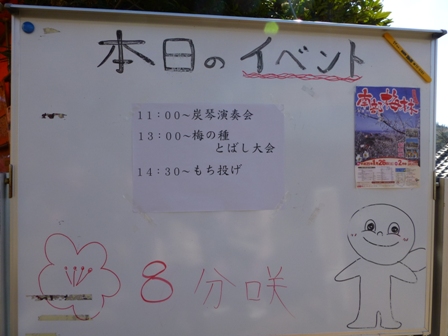 本日のイベント
11：00～炭琴演奏会
13：00～梅の種
とばし大会
14：30～もち投げ
8分咲